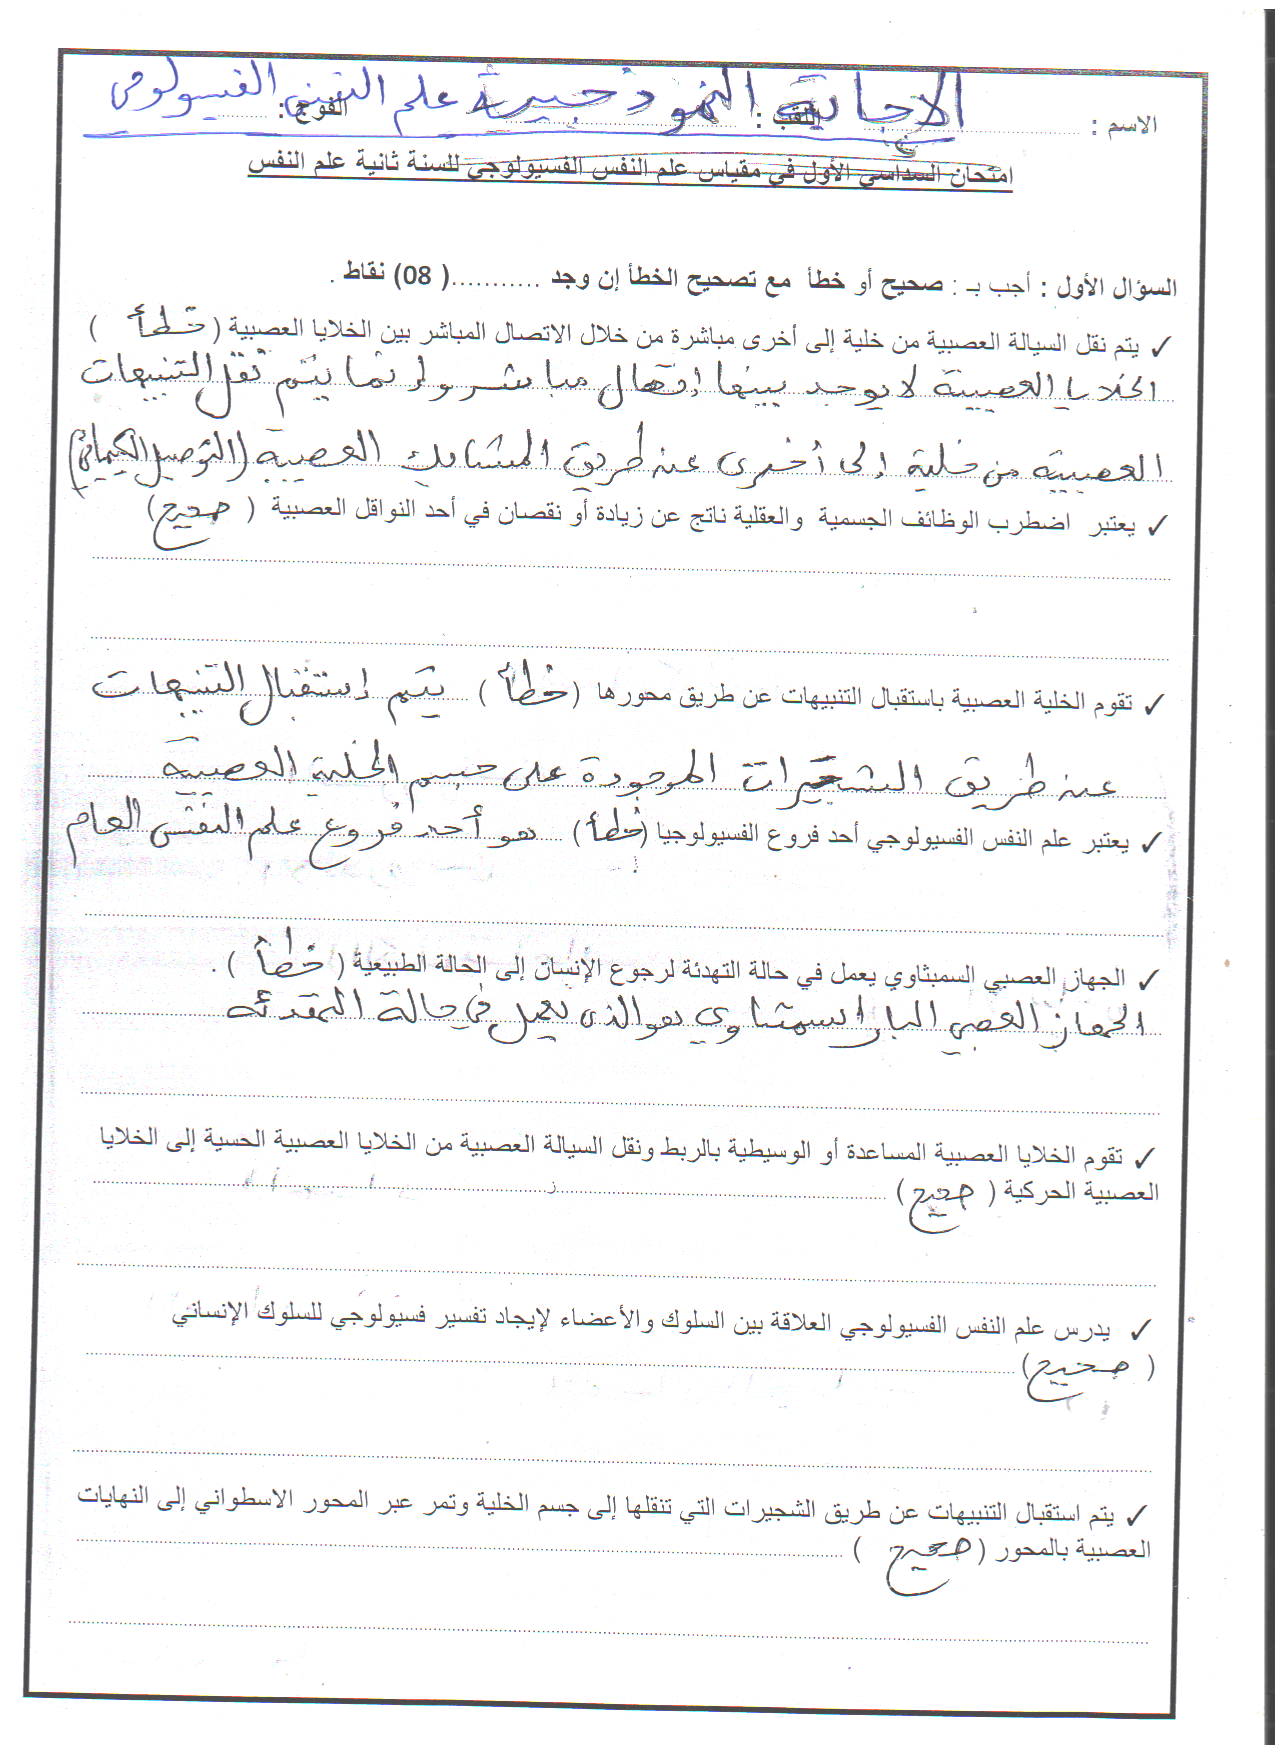 الاجابة النموذجية علم النفس الفسيولوجي
الاسم : ........ اللقب : ........ الفوج : ........
امتحان السداسي الأول في مقياس علم النفس الفسيولوجي للسنة ثانية علم النفس
السؤال الأول : أجب بـ : صحيح أو خطأ مع تصحيح الخطأ إن وجد ...........( 08) نقاط .
✓ يتم نقل السيالة العصبية من خلية إلى أخرى مباشرة من خلال الاتصال المباشر بين الخلايا العصبية ( خطأ )
الخلايا العصبية لا يوجد بينها اتصال مباشر وانما يتم نقل التنبيهات
العصبية من خلية الى أخرى عن طريق المشابك العصبية (التوصيل الكيميائي)
✓ يعتبر اضطرب الوظائف الجسمية والعقلية ناتج عن زيادة أو نقصان في أحد النواقل العصبية ( صحيح )
✓ تقوم الخلية العصبية باستقبال التنبيهات عن طريق محورها ( خطأ ) يتم إستقبال التنبيهات
عن طريق الشجيرات الموجودة على جسم الخلية العصبية
✓ يعتبر علم النفس الفسيولوجي أحد فروع الفسيولوجيا ( خطأ ) هو أحد فروع علم النفس العام
✓ الجهاز العصبي السمبثاوي يعمل في حالة التهدئة لرجوع الإنسان إلى الحالة الطبيعية ( خطأ ) .
الجهاز العصبي الباراسمبثاوي هو الذي يعمل في حالة التهدئة
✓ تقوم الخلايا العصبية المساعدة أو الوسيطية بالربط ونقل السيالة العصبية من الخلايا العصبية الحسية إلى الخلايا
العصبية الحركية ( صحيح )
✓ يدرس علم النفس الفسيولوجي العلاقة بين السلوك والأعضاء لإيجاد تفسير فسيولوجي للسلوك الإنساني
( صحيح )
✓ يتم استقبال التنبيهات عن طريق الشجيرات التي تنقلها إلى جسم الخلية وتمر عبر المحور الاسطواني إلى النهايات
العصبية بالمحور ( صحيح )